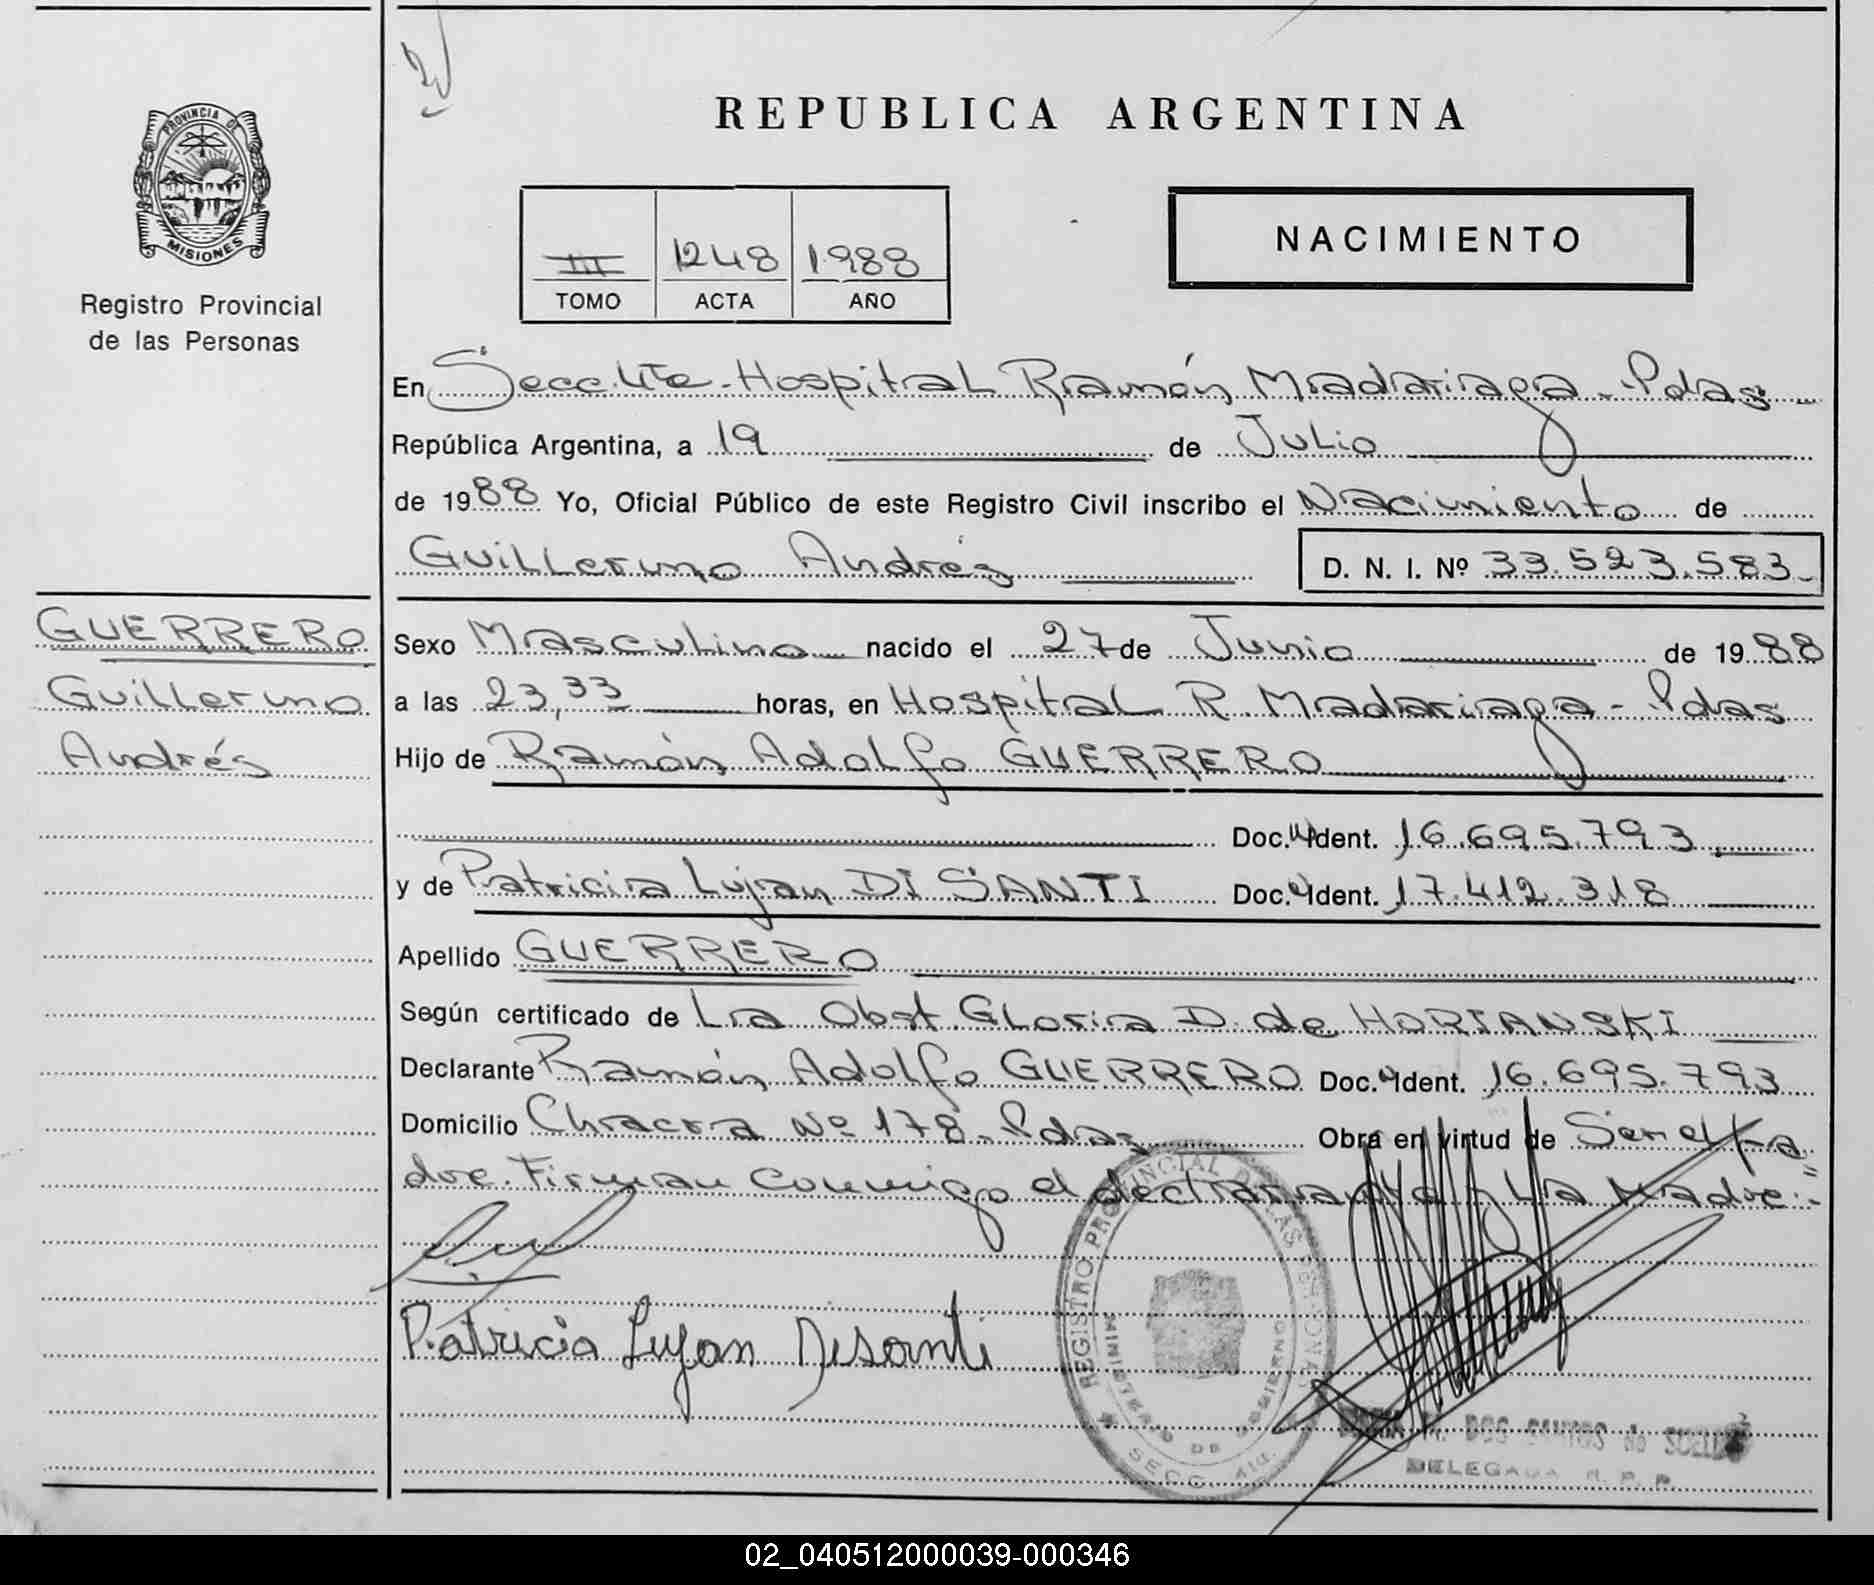 REPUBLICA ARGENTINA
PROVINCIA DE
MISIONES
Registro Provincial
de las Personas
III 1248 1988
TOMO ACTA AÑO
NACIMIENTO
En Secc. 4ta - Hospital Ramón Madariaga - Pdas
República Argentina, a 19 de Julio
de 1988 Yo, Oficial Público de este Registro Civil inscribo el Nacimiento de
Guillermo Andrés D. N. I. Nº 33.523.583.-
GUERRERO
Guillermo
Andrés
Sexo Masculino nacido el 27 de Junio de 1988
a las 23,33 horas, en Hospital R Madariaga - Pdas
Hijo de Ramón Adolfo GUERRERO
Doc. Ident. 16.695.793
y de Patricia Lujan DI SANTI Doc. Ident. 17.412.318
Apellido GUERRERO
Según certificado de La Obst. Gloria D. de HORIANSKI
Declarante Ramón Adolfo GUERRERO Doc. Ident. 16.695.793
Domicilio Chacra Nº 178 - Pdas Obra en virtud de Ser el Pa
dre. Firman conmigo el declarante y La Madre.-
Patricia Lujan Disanti
REGISTRO PROVINCIAL DE LAS PERSONAS
MINISTERIO DE GOBIERNO
SECC. 4ta.
DOS SANTOS de
DELEGADA R. P. P.
02_040512000039-000346